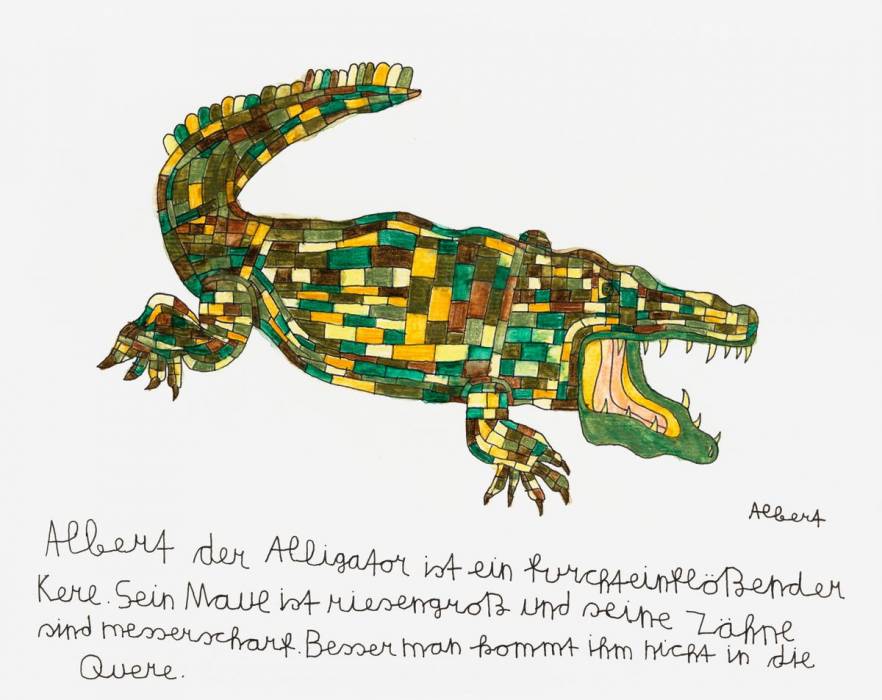 Albert
Albert der Alligator ist ein furchteinflößender
Kerl. Sein Maul ist riesengroß und seine Zähne
sind messerscharf. Besser man kommt ihm nicht in die
Quere.